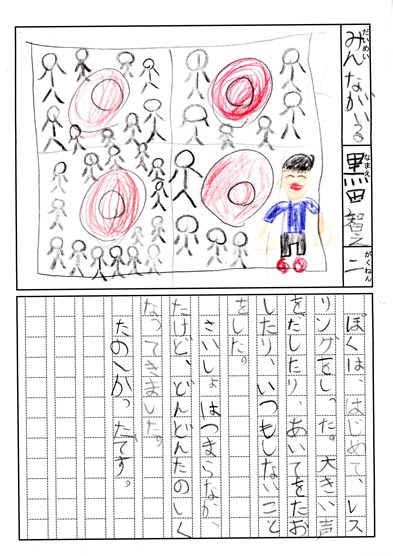 だいめい
みんながいる
なまえ
黒田智之
がくねん
二
ぼくは、はじめて、レス
リングをしった。大きい声
をだしたり、あいてをたお
したり、いつもしないこと
をした。
さいしょはつまらなか、
たけど、どんどんたのしく
なってきました。
たのしかったです。